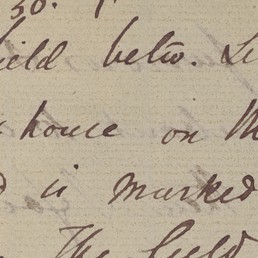 30.
field betw.
house on
is marked
The field